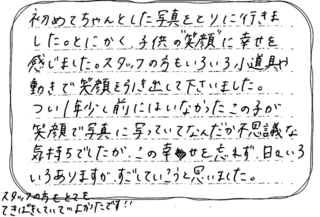 初めてちゃんとした写真をとりに行きま
した。とにかく、子供の"笑顔"に幸せを
感じました。スタッフの方もいろいろ小道具や
動きで笑顔を引き出して下さいました。
つい1年少し前にはいなかったこの子が
笑顔で写真に写っていてなんだか不思議な
気持ちでしたが、この幸せを忘れず、日々いろ
いろありますが、すごしていこうと思いました。
スタッフの方もとても
てきぱきしていてよかったです!!